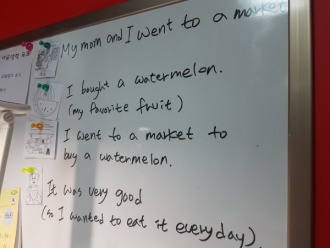 My mom and I went to a market
I bought a watermelon.
(my favorite fruit)
I went to a market to
buy a watermelon.
It was very good
(so I wanted to eat it everyday)